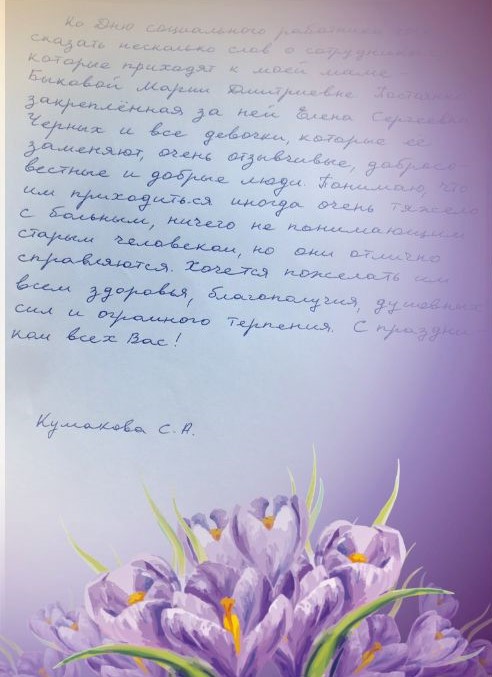 Ко Дню социального работника
сказать несколько слов о сотрудниках
которые приходят к моей маме -
Быковой Марии Дмитриевне. Постоянно
закреплённая за ней Елена Сергеевна
Черных и все девочки, которые её
заменяют, очень отзывчивые, добросо-
вестные и добрые люди. Понимаю, что
им приходиться иногда очень тяжело
с больным, ничего не понимающим
старым человеком, но они отлично
справляются. Хочется пожелать им
всем здоровья, благополучия, душевных
сил и огромного терпения. С праздни-
ком всех Вас!
Кумакова С.А.